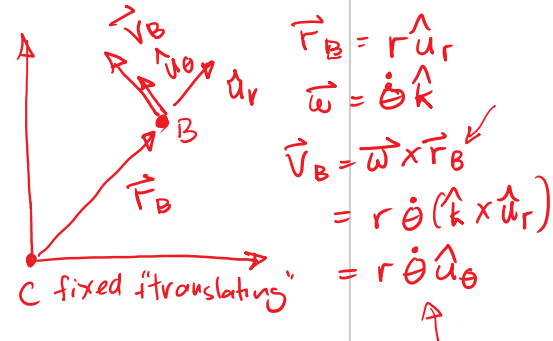 v⃗_B
û_θ
û_r
B
r⃗_B
C fixed "translating"
r⃗_B = r û_r
ω⃗ = θ̇ k̂
v⃗_B = ω⃗ × r⃗_B
= r θ̇ (k̂ × û_r)
= r θ̇ û_θ